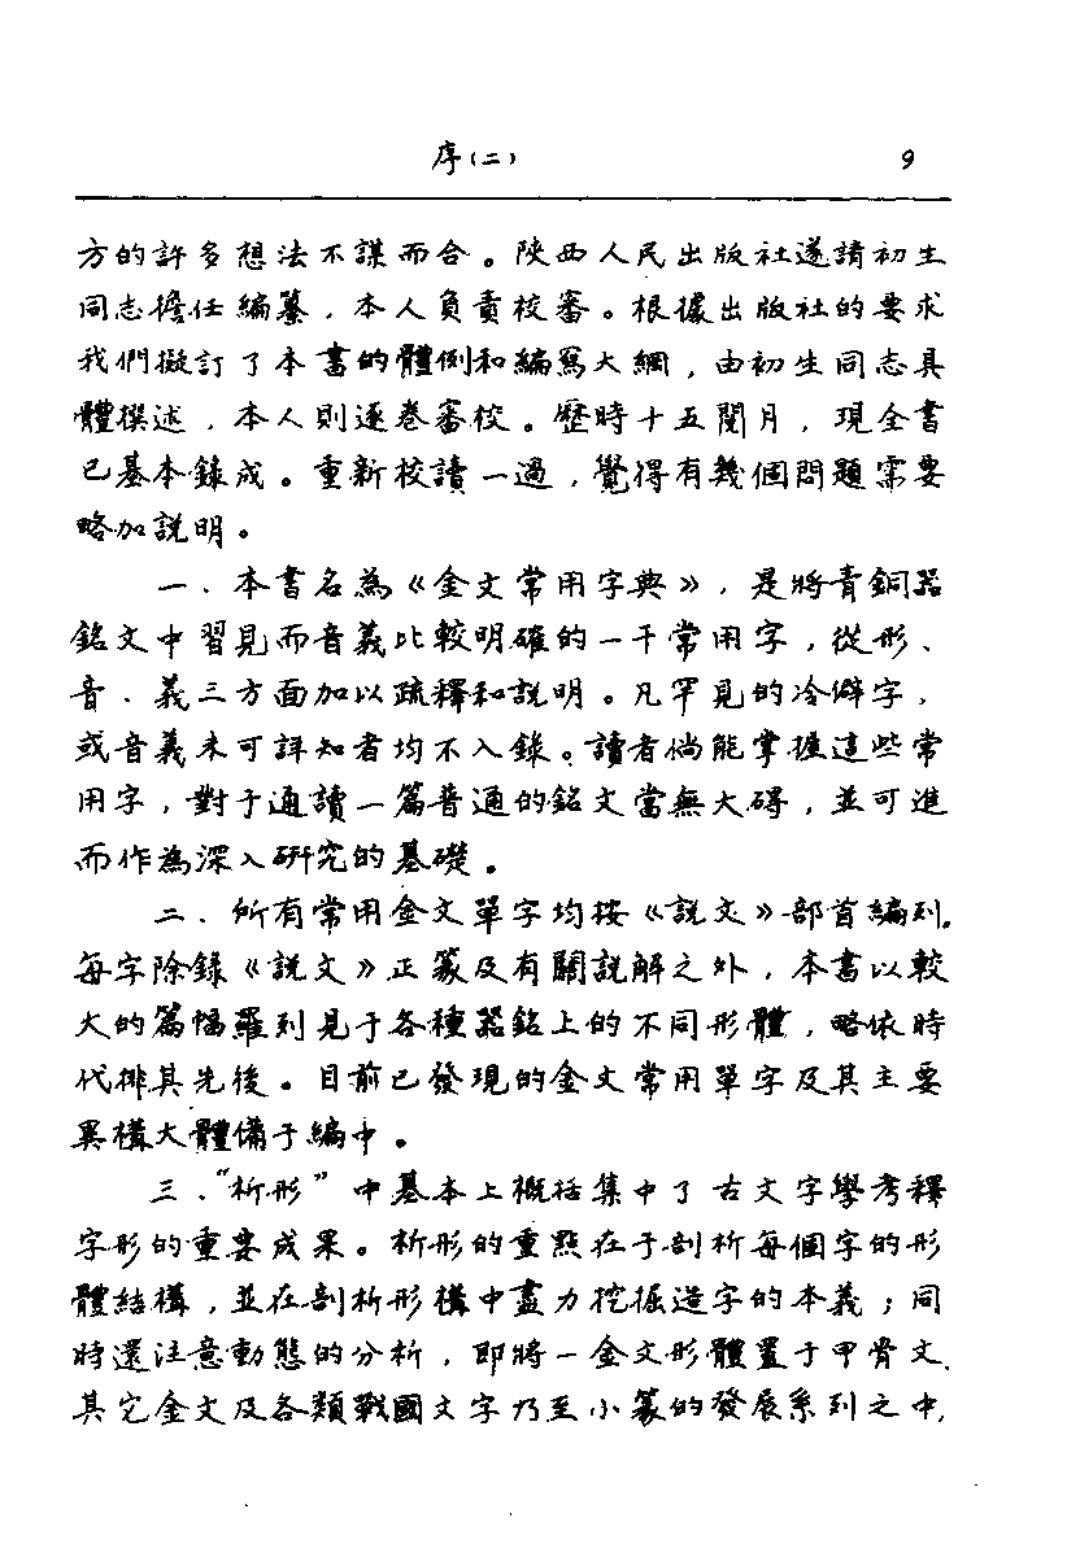 序(二) 9
方的許多想法不謀而合。陝西人民出版社遂請初生
同志擔任編纂，本人負責校審。根據出版社的要求
我們擬訂了本書的體例和編寫大綱，由初生同志具
體撰述，本人則逐卷審校。歷時十五閱月，現全書
已基本錄成。重新校讀一過，覺得有幾個問題需要
略加説明。
一、本書名為《金文常用字典》，是將青銅器
銘文中習見而音義比較明確的一千常用字，從形、
音、義三方面加以疏釋和説明。凡罕見的冷僻字，
或音義未可詳知者均不入錄。讀者倘能掌握這些常
用字，對于通讀一篇普通的銘文當無大碍，並可進
而作為深入研究的基礎。
二、所有常用金文單字均按《説文》部首編列。
每字除錄《説文》正篆及有關説解之外，本書以較
大的篇幅羅列見于各種器銘上的不同形體，略依時
代排其先後。目前已發現的金文常用單字及其主要
異構大體備于編中。
三、“析形”中基本上概括集中了古文字學考釋
字形的重要成果。析形的重點在于剖析每個字的形
體結構，並在剖析形構中盡力挖掘造字的本義；同
時還注意動態的分析，即將一金文形體置于甲骨文、
其它金文及各類戰國文字乃至小篆的發展系列之中，